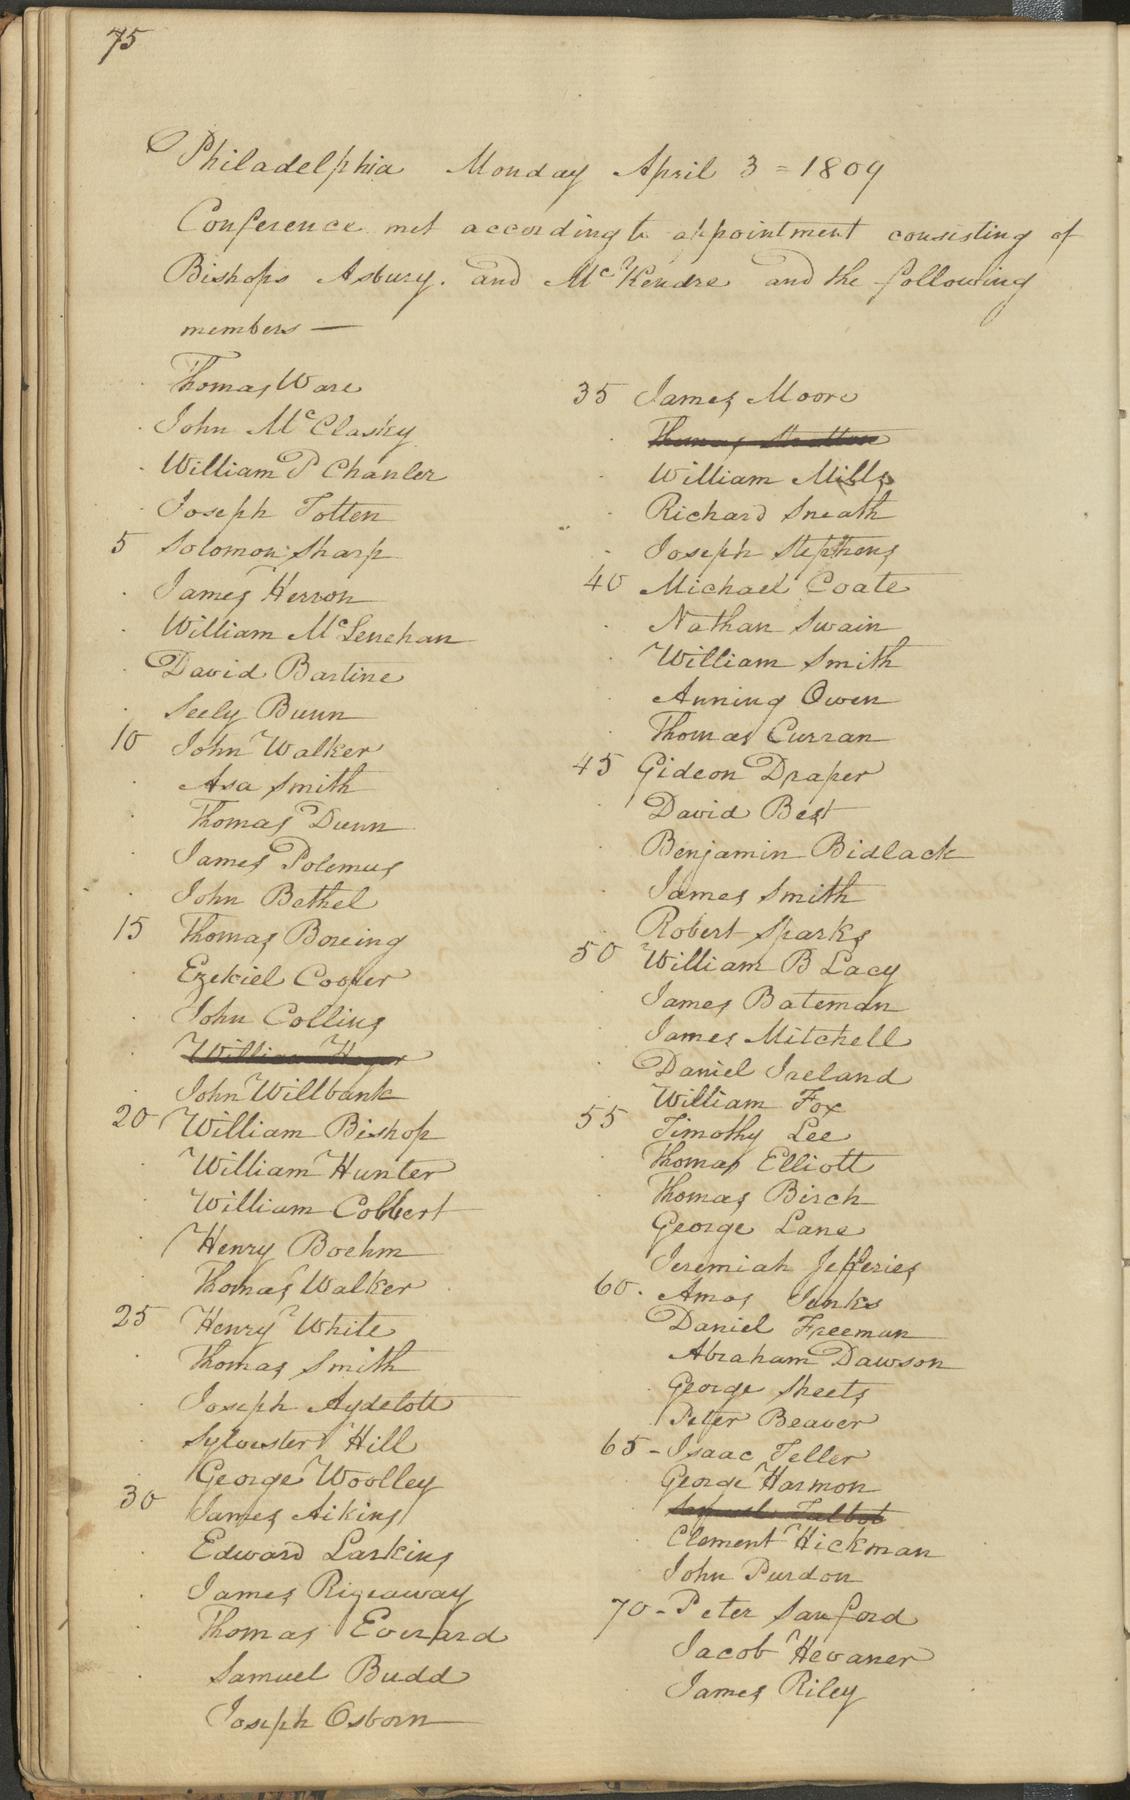 75
Philadelphia Monday April 3 = 1809
Conference met according to appointment consisting of
Bishops Asbury. and McKendre and the following
members —
Thomas Ware
John McClasky
William P Chanler
Joseph Totten
5 Solomon Sharp
James Herron
William McLenehan
David Bartine
Seely Bunn
10 John Walker
Asa Smith
Thomas Dunn
James Polemus
John Bethel
15 Thomas Boreing
Ezekiel Cooper
John Collins
William
John Willbank
20 William Bishop
William Hunter
William Colbert
Henry Boehm
Thomas Walker
25 Henry White
Thomas Smith
Joseph Aydelott
Sylvester Hill
George Woolley
30 James Aikins
Edward Larkins
James Rigeaway
Thomas Everard
Samuel Budd
Joseph Osborn
35 James Moore
Thomas Stratton
William Mills
Richard Sneath
Joseph Stephens
40 Michael Coate
Nathan Swain
William Smith
Anning Owen
Thomas Curran
45 Gideon Draper
David Best
Benjamin Bidlack
James Smith
Robert Sparks
50 William B Lacy
James Bateman
James Mitchell
Daniel Ireland
William Fox
55 Timothy Lee
Thomas Elliott
Thomas Birch
George Lane
Jeremiah Jefferies
60. Amos Jenks
Daniel Freeman
Abraham Dawson
George Sheets
Peter Beaver
65 - Isaac Teller
George Harmon
Talbot
Clement Hickman
John Purdon
70 - Peter Sanford
Jacob Hevaner
James Riley